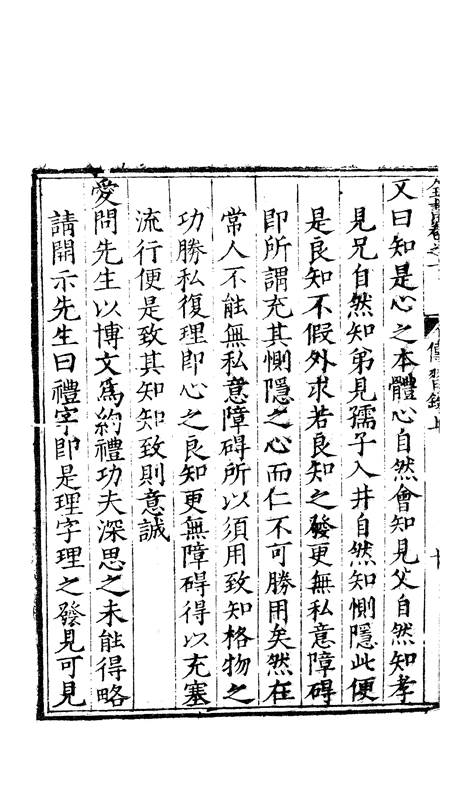 全書卷之一　傳習錄上　十
又曰知是心之本體心自然會知見父自然知孝
見兄自然知弟見孺子入井自然知惻隱此便
是良知不假外求若良知之發更無私意障碍
即所謂充其惻隱之心而仁不可勝用矣然在
常人不能無私意障碍所以須用致知格物之
功勝私復理即心之良知更無障碍得以充塞
流行便是致其知知致則意誠
愛問先生以博文爲約禮功夫深思之未能得略
請開示先生曰禮字即是理字理之發見可見